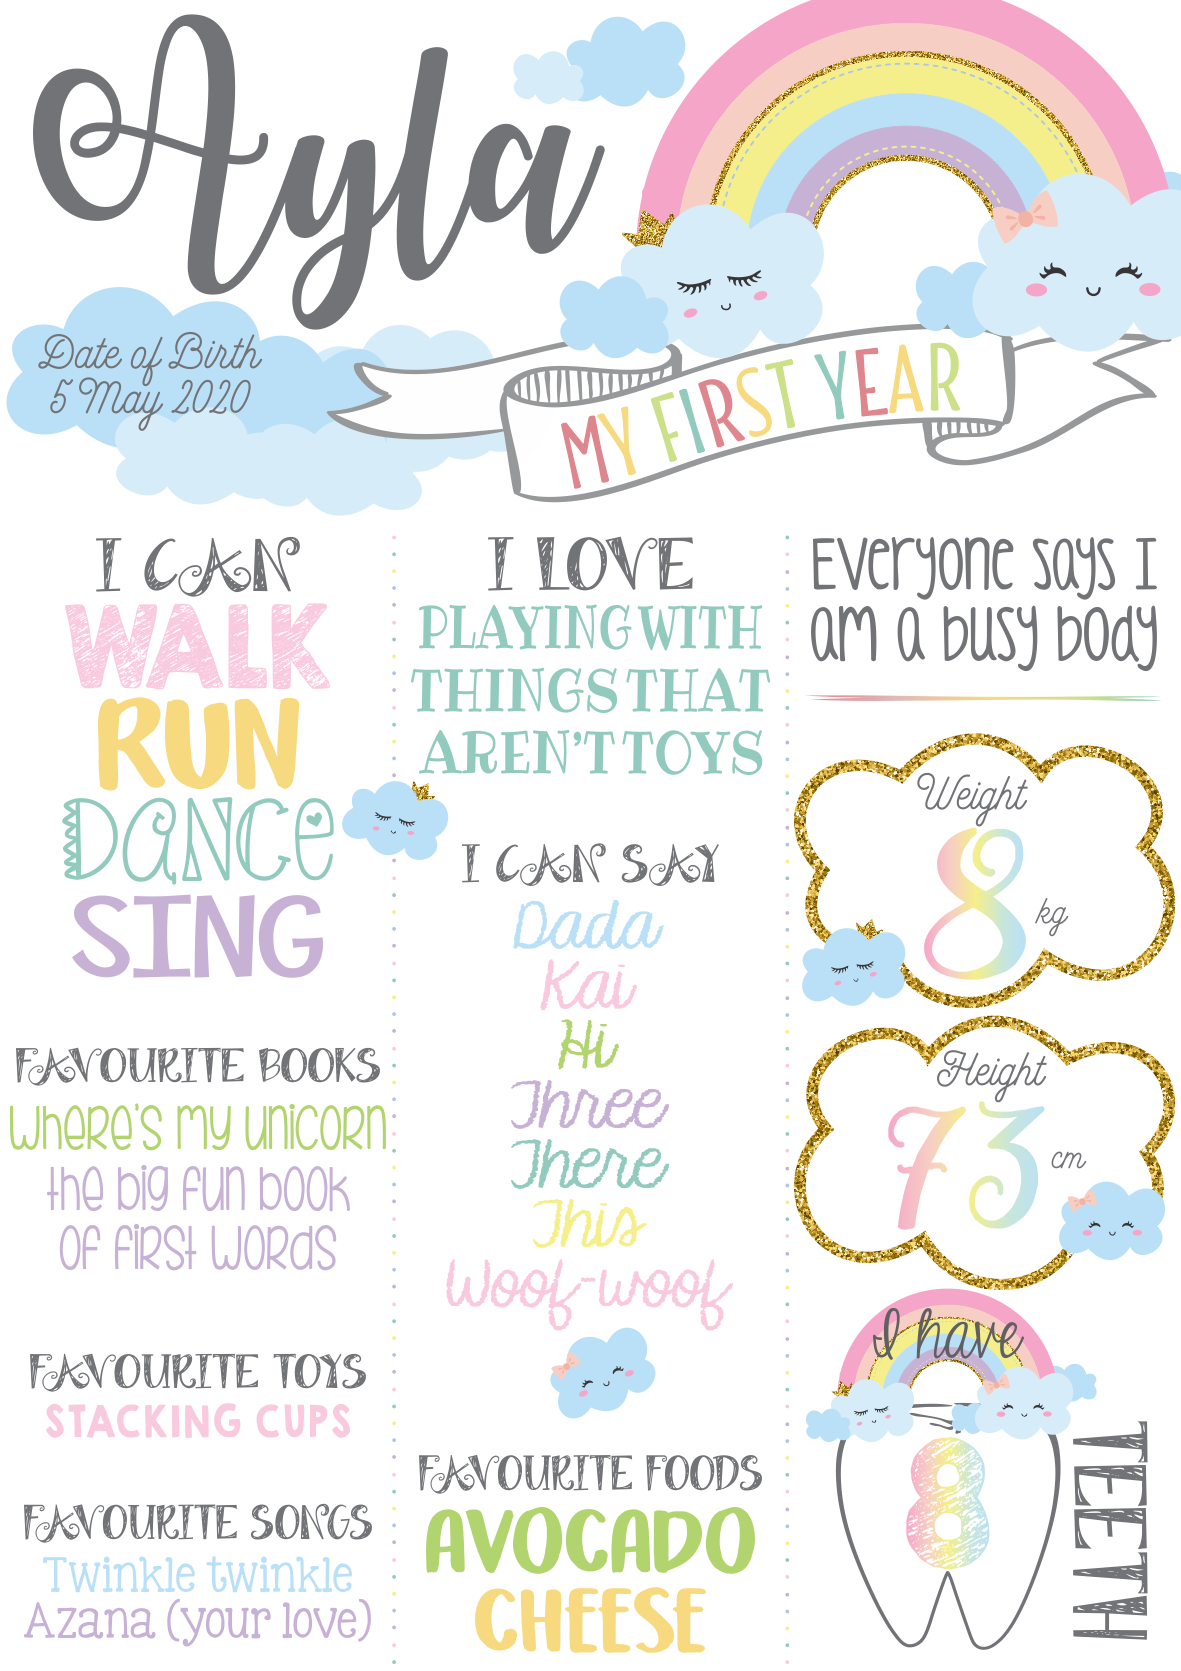 Ayla
Date of Birth
5 May 2020
MY FIRST YEAR
I CAN
WALK
RUN
DANCE
SING
FAVOURITE BOOKS
WHERE'S MY UNICORN
the big fun book
of first words
FAVOURITE TOYS
STACKING CUPS
FAVOURITE SONGS
Twinkle twinkle
Azana (your love)
I LOVE
PLAYING WITH
THINGS THAT
AREN'T TOYS
I CAN SAY
Dada
Kai
Hi
Three
There
This
Woof-woof
FAVOURITE FOODS
AVOCADO
CHEESE
Everyone says I
am a busy body
Weight
8 kg
Height
73 cm
I have
8
TEETH